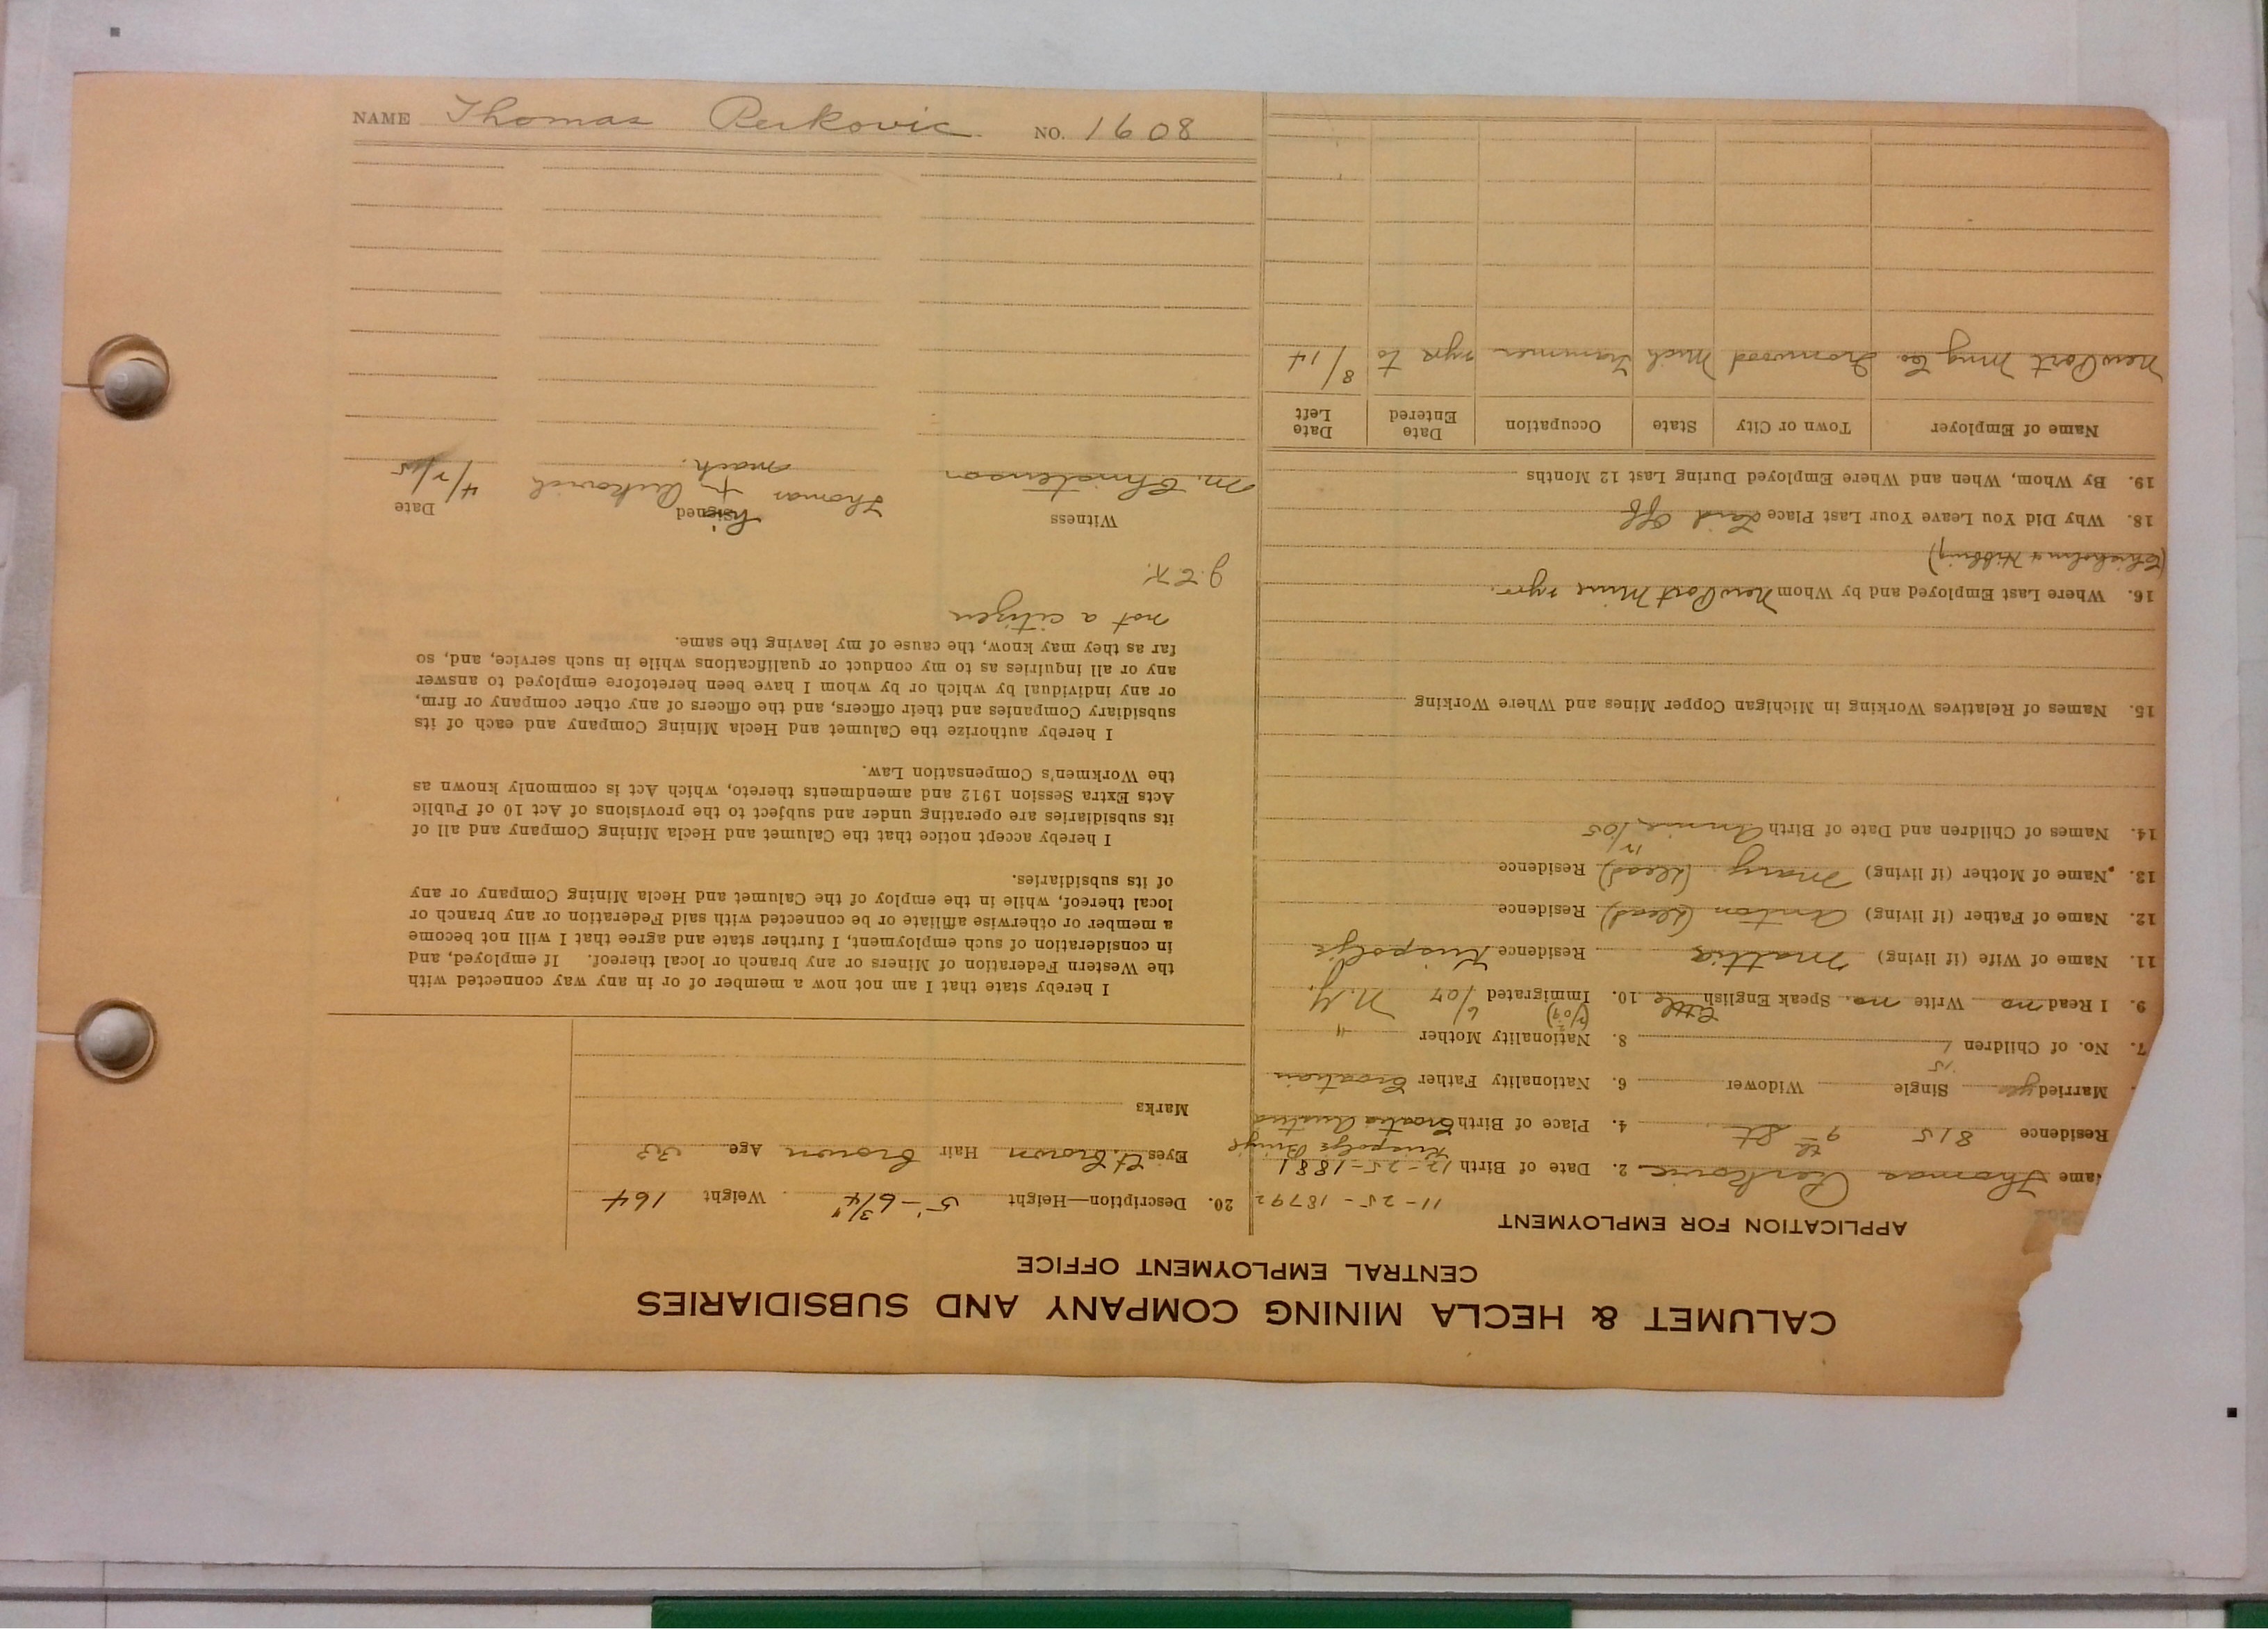 NAME Thomas Perkovic NO. 1608
CALUMET & HECLA MINING COMPANY AND SUBSIDIARIES
CENTRAL EMPLOYMENT OFFICE
APPLICATION FOR EMPLOYMENT
11-25-1879?
Name Thomas Perkovic 2. Date of Birth 12-25-1881
Residence 815 9th St. 4. Place of Birth Croatia Austria
Married yes Single Widower 6. Nationality Father Croatian
15
7. No. of Children 1 8. Nationality Mother "
9. I Read no Write no. Speak English little 10. Immigrated 6/07 N.Y.
11. Name of Wife (if living) Residence
12. Name of Father (if living) Anton (dead) Residence
13. Name of Mother (if living) Mary (dead) Residence
14. Names of Children and Date of Birth Annie 12/05
15. Names of Relatives Working in Michigan Copper Mines and Where Working
16. Where Last Employed and by Whom NewPort Mine 2yrs.
(Chisholm & Hibbing)
18. Why Did You Leave Your Last Place Laid Off
19. By Whom, When and Where Employed During Last 12 Months
Name of Employer Town or City State Occupation Date Entered Date Left
NewPort Mng Co. Ironwood Mich Trammer 2yrs to 8/14
20. Description—Height 5'-6 3/4" Weight 164
Eyes Lt. Brown Hair Brown Age 33
Marks
I hereby state that I am not now a member of or in any way connected with
the Western Federation of Miners or any branch or local thereof. If employed, and
in consideration of such employment, I further state and agree that I will not become
a member or otherwise affiliate or be connected with said Federation or any branch or
local thereof, while in the employ of the Calumet and Hecla Mining Company or any
of its subsidiaries.
I hereby accept notice that the Calumet and Hecla Mining Company and all of
its subsidiaries are operating under and subject to the provisions of Act 10 of Public
Acts Extra Session 1912 and amendments thereto, which Act is commonly known as
the Workmen's Compensation Law.
I hereby authorize the Calumet and Hecla Mining Company and each of its
subsidiary Companies and their officers, and the officers of any other company or firm,
or any individual by which or by whom I have been heretofore employed to answer
any or all inquiries as to my conduct or qualifications while in such service, and, so
far as they may know, the cause of my leaving the same.
not a citizen
Witness Signed Date
his
M. Christenson Thomas x Perkovich 4/2/15
mark.